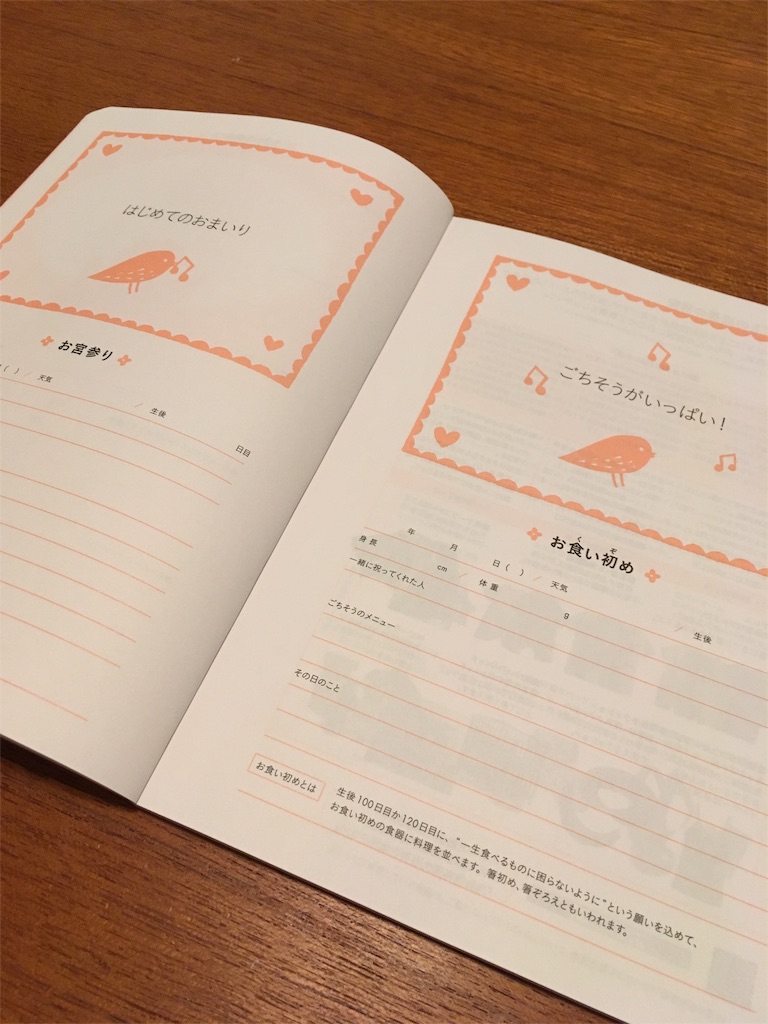 はじめてのおまいり
お宮参り
( ) / 天気
/ 生後
日目
ごちそうがいっぱい!
お食い初めくぞ
年 月 日 ( ) / 天気 / 生後
身長 cm / 体重 g
一緒に祝ってくれた人
ごちそうのメニュー
その日のこと
お食い初めとは
生後100日目か120日目に、“一生食べるものに困らないように”という願いを込めて、
お食い初めの食器に料理を並べます。箸初め、箸ぞろえともいわれます。